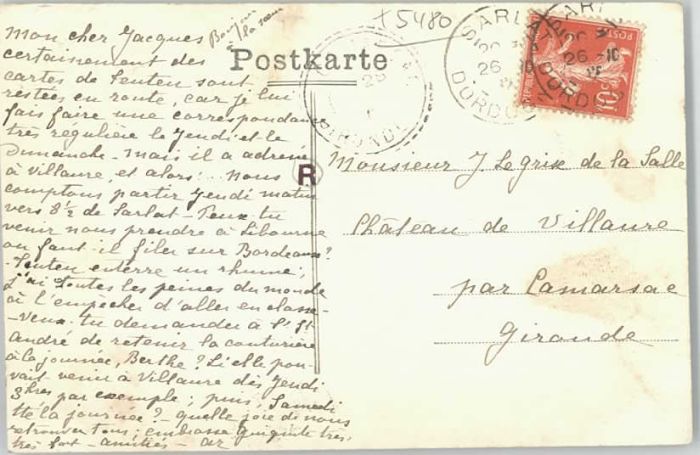 Bonjour
à la sœur
Mon cher Jacques
certainement des
cartes de Tenten sont
restées en route, car je lui
fais faire une correspondance
très régulière le Jeudi et le
Dimanche - mais il a adressé
à Villaure, et alors!... Nous
comptons partir Jeudi matin
vers 8½ de Sarlat - Peux-tu
venir nous prendre à Libourne
ou faut-il filer sur Bordeaux?
Tenten enterre un rhume;
j'ai toutes les peines du monde
à l'empêcher d'aller en classe -
- Veux-tu demander à St
André de retenir la couturière
à la journée, Berthe? Si elle pou-
vait venir à Villaure dès Jeudi
3hres par exemple; puis, Samedi
tte la journée? - quelle joie de nous
retrouver tous; embrasse
très fort - amitiés -
Postkarte
X5480
SARLAT
26 -10
DORDOGNE
SARLAT
26 -10
DORDOGNE
GIRONDE
10c
R
Monsieur J. Le grix de la Salle
Château de Villaure
par Camarsac
Gironde